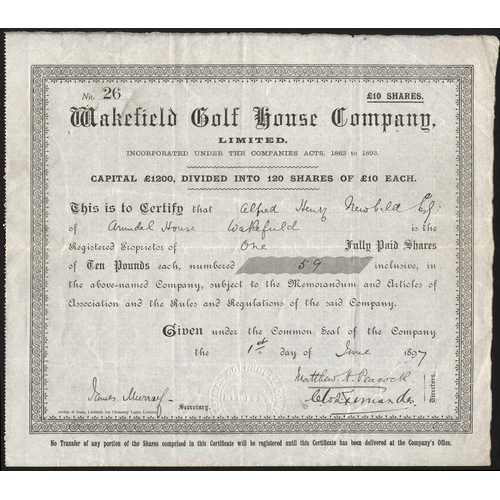 No. 26
£10 SHARES.
Wakefield Golf House Company,
LIMITED.
INCORPORATED UNDER THE COMPANIES ACTS, 1862 to 1893.
CAPITAL £1200, DIVIDED INTO 120 SHARES OF £10 EACH.
This is to Certify that Alfred Henry Newbild Esq:
of Arundel House Wakefield is the
Registered Proprietor of One Fully Paid Shares
of Ten Pounds each, numbered 59 inclusive, in
the above-named Company, subject to the Memorandum and Articles of
Association and the Rules and Regulations of the said Company.
Given under the Common Seal of the Company
the 1st day of June 1897
Matthew H. Peacock
Directors.
James Murray
Secretary.
& Sons, Limited, Chancery Lane, London
No Transfer of any portion of the Shares comprised in this Certificate will be registered until this Certificate has been delivered at the Company's Office.